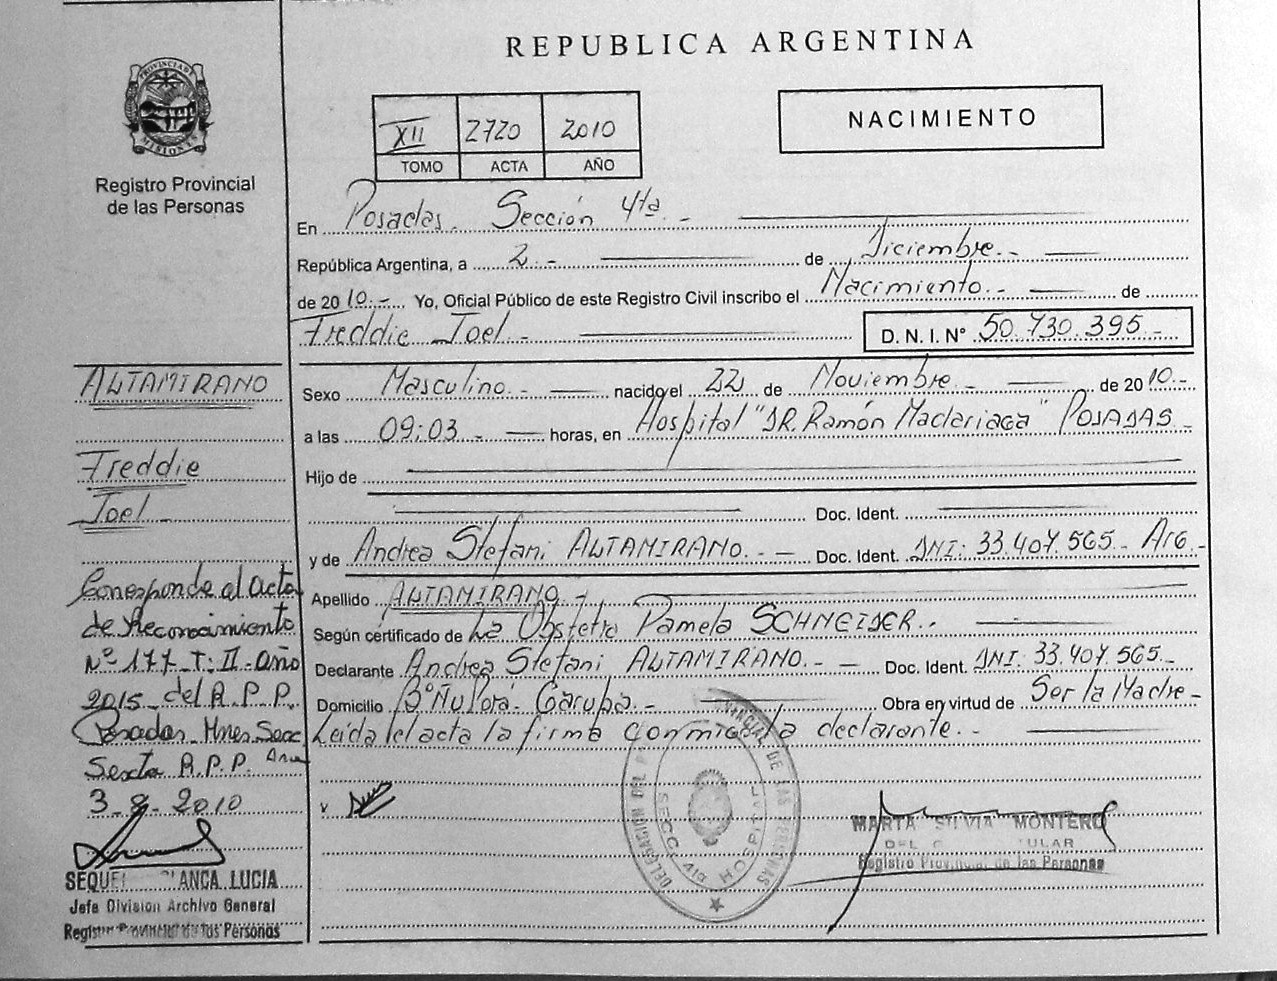 PROVINCIA DE
MISIONES
Registro Provincial
de las Personas
REPUBLICA ARGENTINA
XII 2720 2010
TOMO ACTA AÑO
NACIMIENTO
En Posadas. Sección 4ta.-
República Argentina, a 2.- de Diciembre.-
de 2010.- Yo, Oficial Público de este Registro Civil inscribo el Nacimiento.- de
Freddie Joel.- D. N. I. Nº 50.730.395.-
Sexo Masculino.- nacido el 22 de Noviembre.- de 2010.-
a las 09:03.- horas, en Hospital "DR. Ramón Madariaga" POSADAS.-
Hijo de
Doc. Ident.
y de Andrea Stefani ALTAMIRANO.- Doc. Ident. DNI: 33.407.565.- Arg.-
Apellido ALTAMIRANO.-
Según certificado de La Obstetra Pamela SCHNEIDER.-
Declarante Andrea Stefani ALTAMIRANO.- Doc. Ident. DNI: 33.407.565.-
Domicilio Bº Ñu Porá- Garupá.- Obra en virtud de Ser la Madre.-
Leída el acta la firma conmigo la declarante.-
ALTAMIRANO
Freddie
Joel.-
Corresponde al Acta
de Reconocimiento
Nº 177 T: II Año
2015 del R.P.P.
Posadas Mnes Secc
Sexta R.P.P.
3-8-2010
BLANCA LUCIA
Jefa Division Archivo General
Registro Provincial de las Personas
SECC 4ta HOSPITAL
MARTA SILVIA MONTERO
Registro Provincial de las Personas